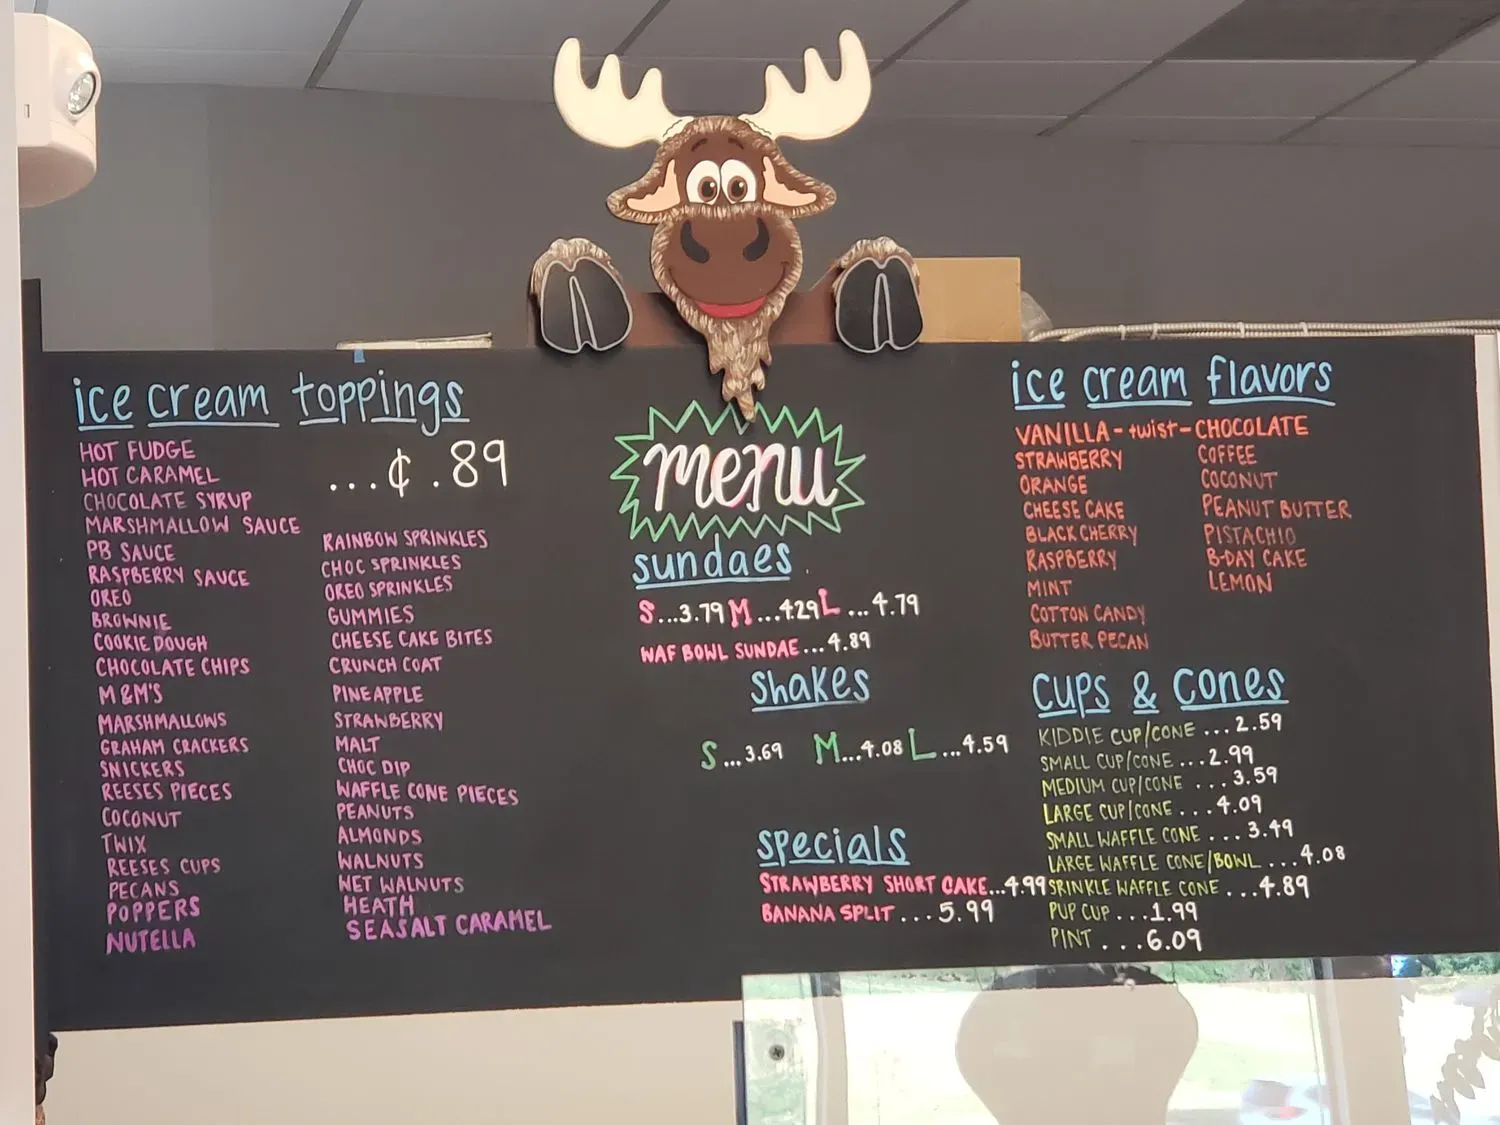 ice cream toppings
...¢ .89
HOT FUDGE
HOT CARAMEL
CHOCOLATE SYRUP
MARSHMALLOW SAUCE
PB SAUCE
RASPBERRY SAUCE
OREO
BROWNIE
COOKIE DOUGH
CHOCOLATE CHIPS
M&M'S
MARSHMALLOWS
GRAHAM CRACKERS
SNICKERS
REESES PIECES
COCONUT
TWIX
REESES CUPS
PECANS
POPPERS
NUTELLA
RAINBOW SPRINKLES
CHOC SPRINKLES
OREO SPRINKLES
GUMMIES
CHEESE CAKE BITES
CRUNCH COAT
PINEAPPLE
STRAWBERRY
MALT
CHOC DIP
WAFFLE CONE PIECES
PEANUTS
ALMONDS
WALNUTS
WET WALNUTS
HEATH
SEASALT CARAMEL
menu
sundaes
S...3.79 M...4.29 L...4.79
WAF BOWL SUNDAE...4.89
shakes
S...3.69 M...4.08 L...4.59
specials
STRAWBERRY SHORT CAKE...4.99
BANANA SPLIT...5.99
ice cream flavors
VANILLA-twist-CHOCOLATE
STRAWBERRY
ORANGE
CHEESE CAKE
BLACK CHERRY
RASPBERRY
MINT
COTTON CANDY
BUTTER PECAN
COFFEE
COCONUT
PEANUT BUTTER
PISTACHIO
B-DAY CAKE
LEMON
cups & cones
KIDDIE CUP/CONE...2.59
SMALL CUP/CONE...2.99
MEDIUM CUP/CONE...3.59
LARGE CUP/CONE...4.09
SMALL WAFFLE CONE...3.49
LARGE WAFFLE CONE/BOWL...4.08
SPRINKLE WAFFLE CONE...4.89
PUP CUP...1.99
PINT...6.09